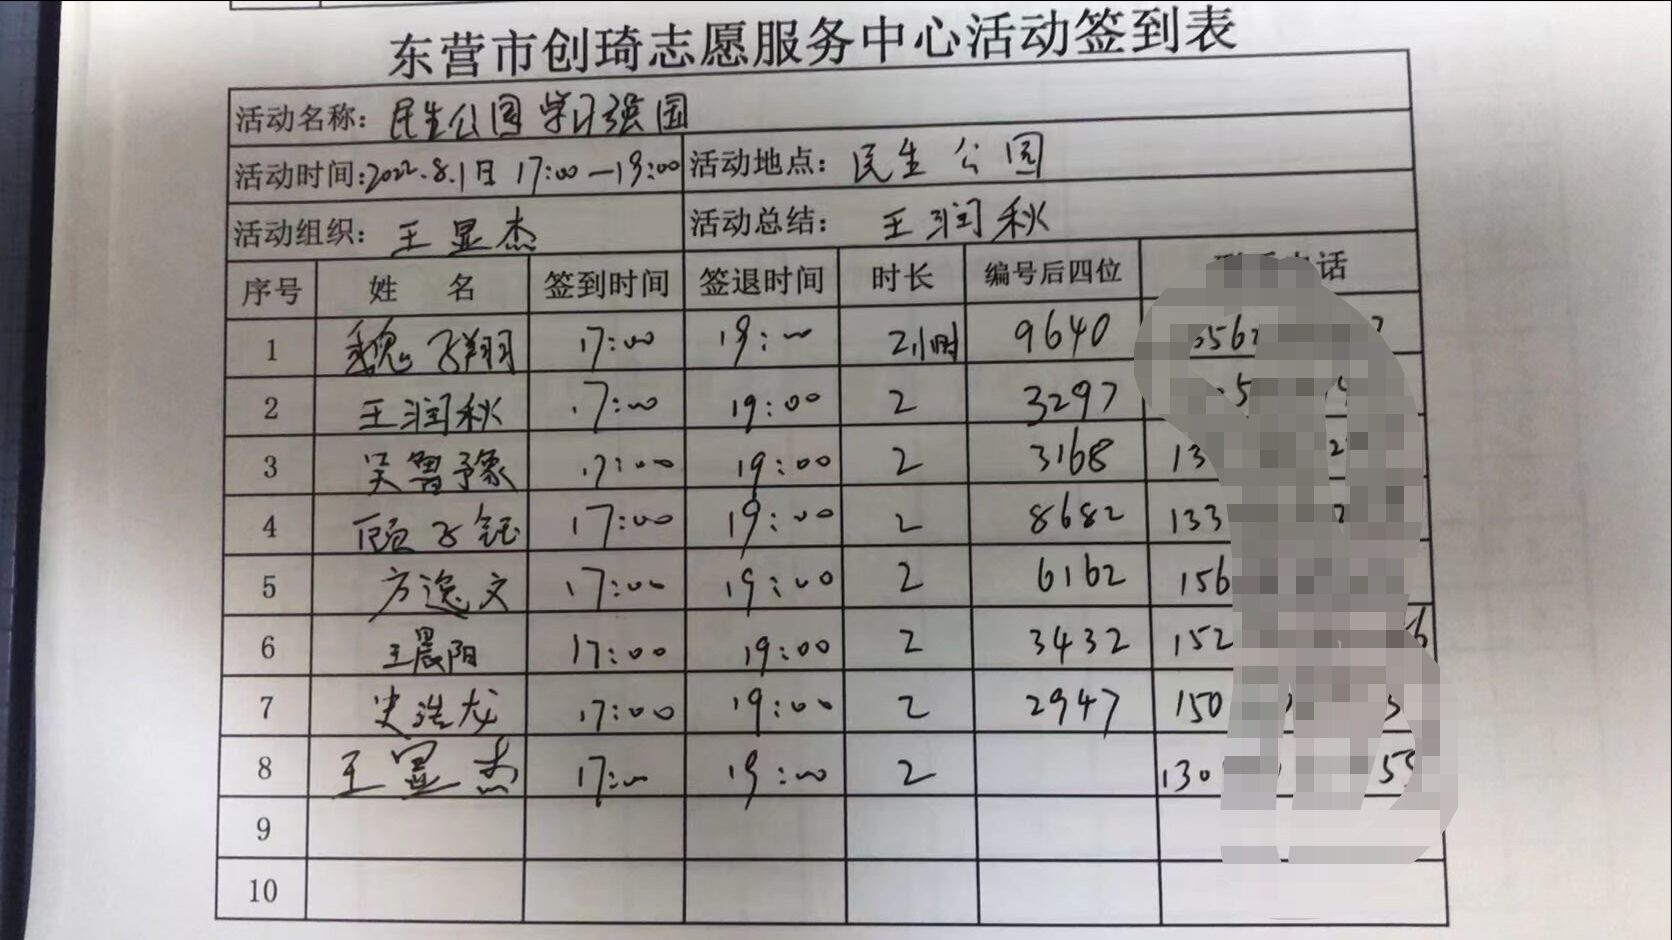 东营市创琦志愿服务中心活动签到表
活动名称：民生公园 学习强国
活动时间:2022.8.1日 17:00—19:00 活动地点：民生公园
活动组织：王显杰 活动总结：王润秋
序号 姓 名 签到时间 签退时间 时长 编号后四位 话
1 魏飞翔 17:00 19:00 2小时 9640
2 王润秋 17:00 19:00 2 3297
3 吴鲁豫 17:00 19:00 2 3168 13
4 顾飞钰 17:00 19:00 2 8682 133
5 方逸文 17:00 19:00 2 6162 156
6 王晨阳 17:00 19:00 2 3432 152 6
7 史浩龙 17:00 19:00 2 2947 150 3
8 王显杰 17:00 19:00 2 130 55
9
10